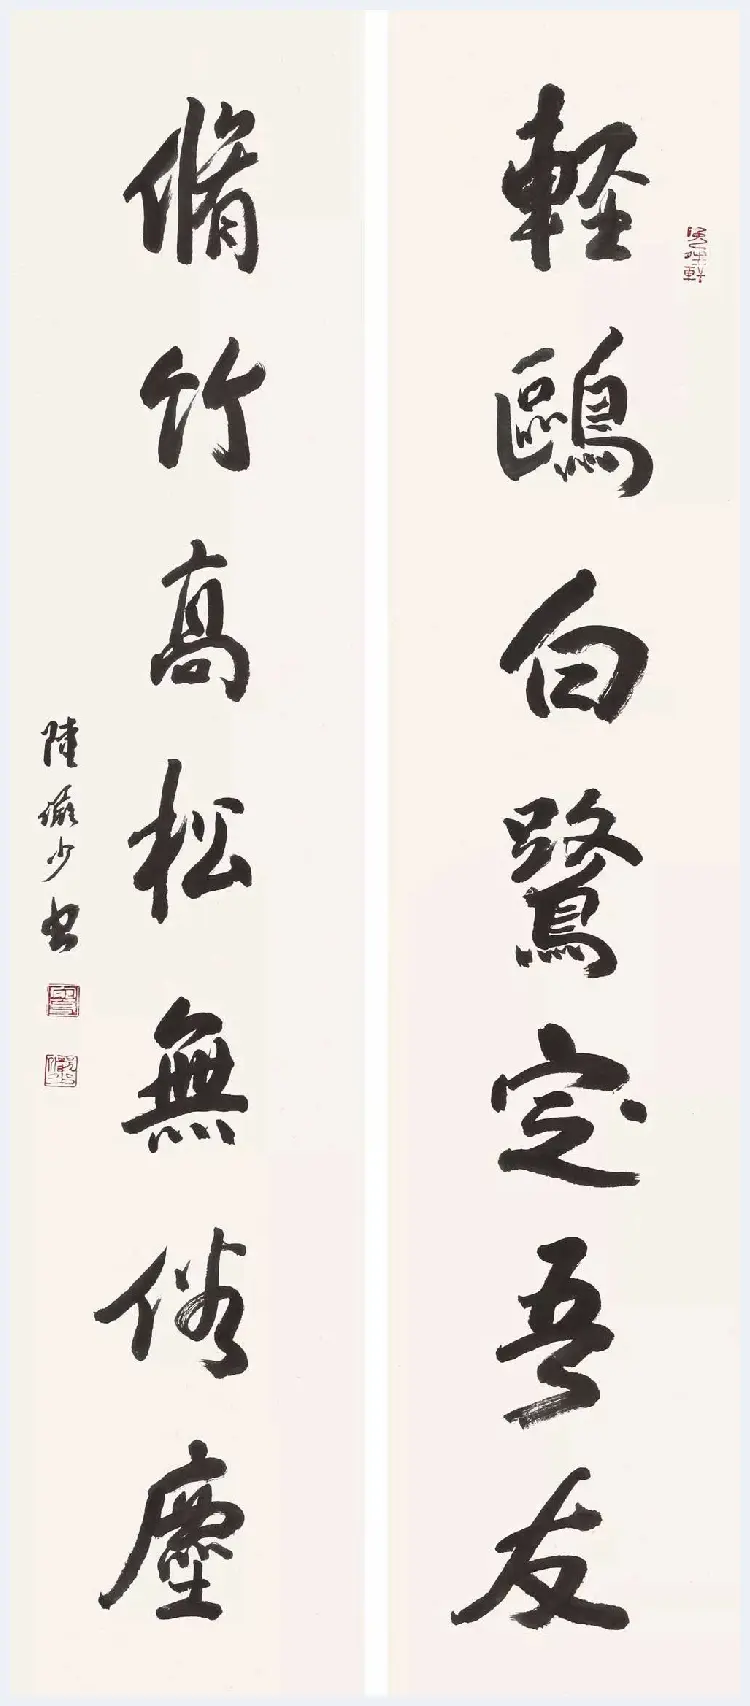 輕鷗白鷺定吾友
脩竹高松無俗塵
陸儼少書